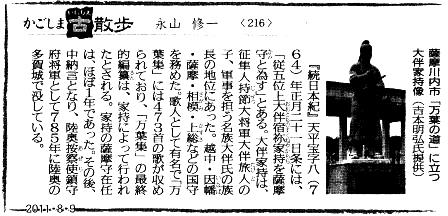 かごしま古散歩 永山 修一 〈216〉
薩摩川内市「万葉の道」に立つ
大伴家持像（吉本明弘氏提供）
『続日本紀』天平宝字八（7
64）年正月二十一日条には、
「従五位上大伴宿祢家持を薩摩
守と為す」とある。大伴家持は、
征隼人持節大将軍大伴旅人の
子、軍事を担う名族大伴氏の族
長の地位にあった。越中・因幡
・薩摩・相模・上総などの国守
を務めた。歌人として有名で「万
葉集」には473首の歌が収め
られており、「万葉集」の最終
的編纂は、家持によって行われ
たとされる。家持の薩摩守在任
は、ほぼ1年であった。その後、
中納言となり、陸奥按察使鎮守
府将軍として785年に陸奥の
多賀城で没している。
2011-8-9